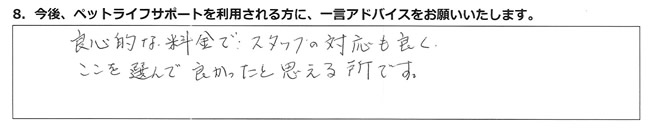 8. 今後、ペットライフサポートを利用される方に、一言アドバイスをお願いいたします。
良心的な料金で、スタッフの対応も良く、
ここを選んで良かったと思える所です。